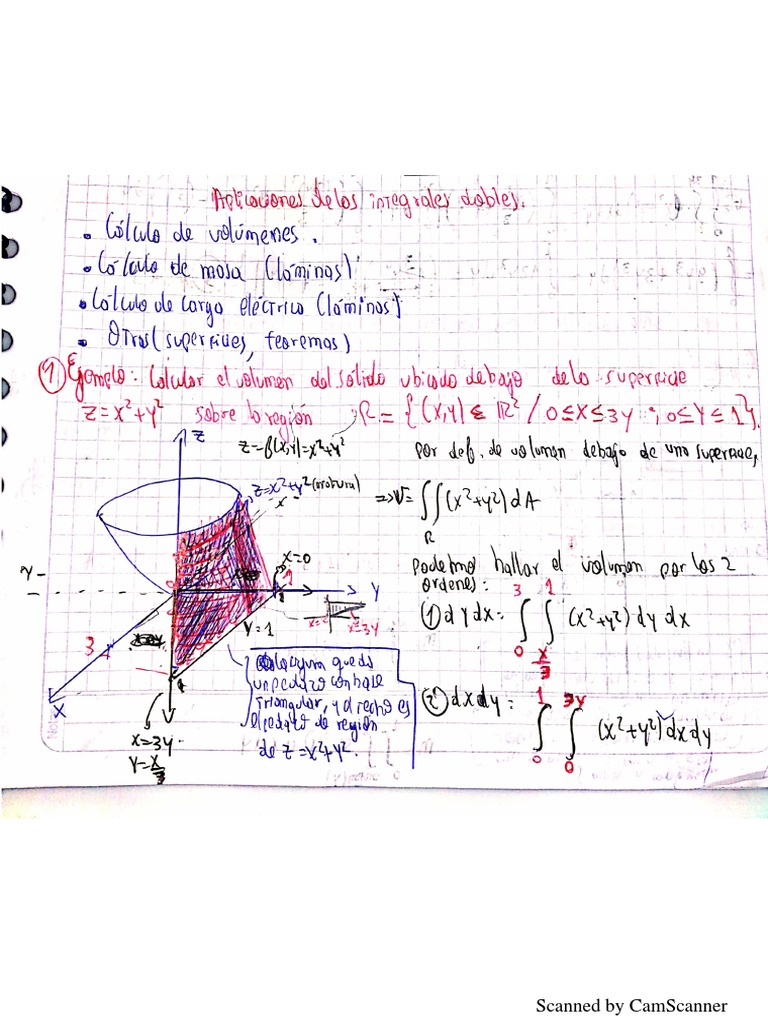 Aplicaciones de las integrales dobles.
• Cálculo de volúmenes.
• Cálculo de masa (láminas)
• Cálculo de carga eléctrica (láminas)
• Otras (superficies, teoremas)
① Ejemplo: Calcular el volumen del sólido ubicado debajo de la superficie
z=x²+y² sobre la región R:= {(x,y) ∈ ℝ² / 0≤x≤3y ; 0≤y≤1}.
z
z=f(x,y)=x²+y²
z=x²+y²
por def. de volumen debajo de una superficie,
=> V= ∬ (x²+y²) dA
R
x=0
1
y
Podemos hallar el volumen por los 2
ordenes:
① dy dx: ∫₀³ ∫_{x/3}^1 (x²+y²) dy dx
y=1
x=3y
3
x
x=3y
y=x/3
La figura queda
un pedazo con base
triangular, y el techo es
el pedazo de región
de z=x²+y².
② dx dy: ∫₀¹ ∫₀^{3y} (x²+y²) dx dy
Scanned by CamScanner